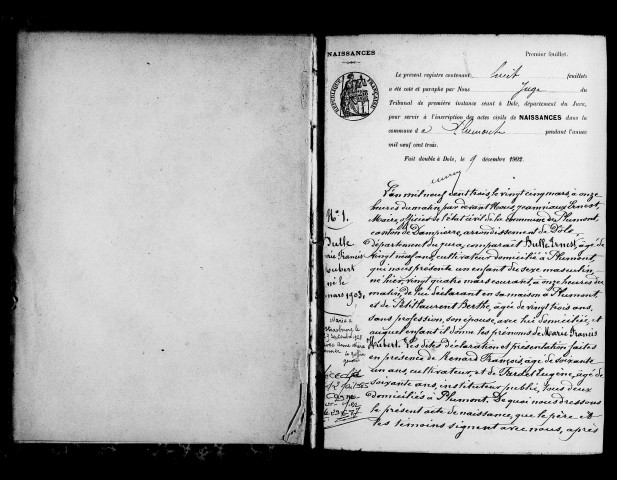 NAISSANCES
Premier feuillet.
RÉPUBLIQUE FRANÇAISE
Le présent registre contenant huit feuillets
a été coté et paraphé par Nous Juge du
Tribunal de première instance séant à Dole, département du Jura,
pour servir à l'inscription des actes civils de NAISSANCES dans la
commune d e Plumont pendant l'année
mil neuf cent trois.
Fait double à Dole, le 9 décembre 1902.
N° 1.
Bulle
Marie Francis
Hubert
né le
mars 1903.
L'an mil neuf cent trois, le vingt cinq mars, à onze
heures du matin, par devant Nous, Jeanniaux Ernest,
Maire, officier de l'état civil de la commune de Plumont,
canton de Dampierre, arrondissement de Dole,
département du Jura, comparaît Bulle Ernest, âgé de
vingt neuf ans, cultivateur domicilié à Plumont,
qui nous présente un enfant du sexe masculin,
né hier, vingt quatre mars courant, à onze heures du
matin, de lui déclarant en sa maison à Plumont,
et de Petitlaurent Berthe, âgée de vingt trois ans,
sans profession, son épouse, avec lui domiciliée, et
auquel enfant il donne les prénoms de Marie Francis
Hubert. Les dites déclaration et présentation faites
en présence de Renard François, âgé de soixante
un ans, cultivateur, et de Eugène, âgé de
soixante ans, instituteur public, tous deux
domiciliés à Plumont. De quoi nous dressons
le présent acte de naissance, que le père et
les témoins signent avec nous, après